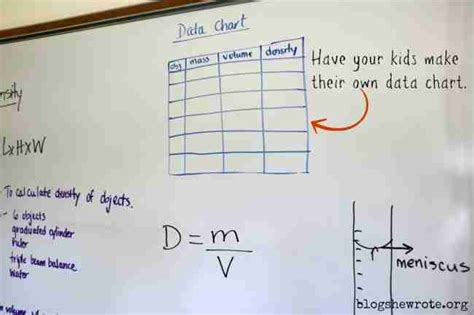 Data Chart
obj mass volume density
Have your kids make
their own data chart.
nsity
LxHxW
To calculate density of objects.
- 6 objects
graduated cylinder
ruler
triple beam balance
water
D = m
V
meniscus
volume of
blogshewrote.org